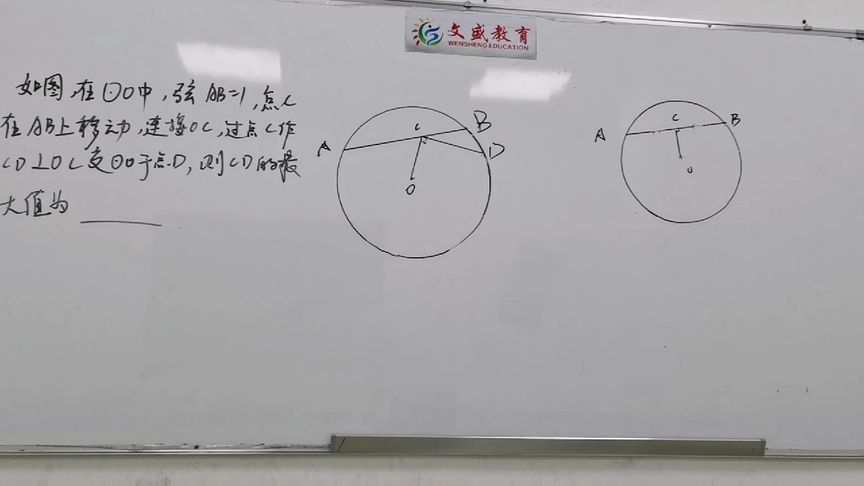 文盛教育
WENSHENG EDUCATION
如图,在⊙O中,弦AB=1,点C
在AB上移动,连接OC,过点C作
CD⊥OC交⊙O于点D,则CD的最
大值为
A
C
B
D
O
A
C
B
O